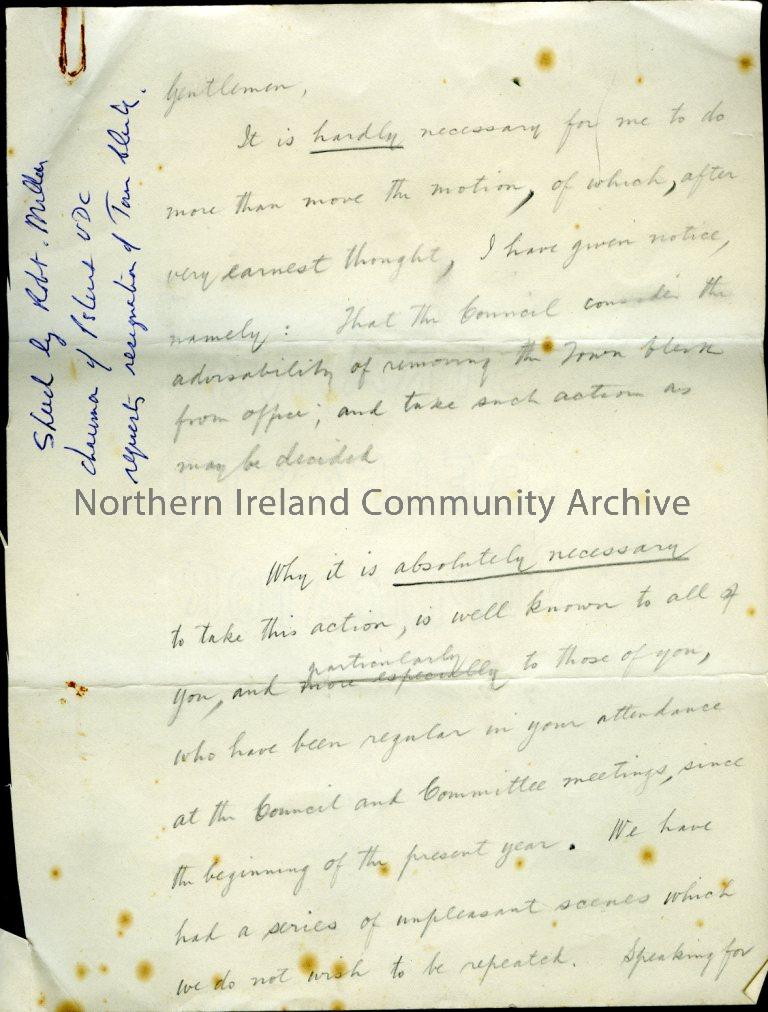 Gentlemen,
It is hardly necessary for me to do
more than move the motion, of which, after
very earnest thought, I have given notice,
namely: That the Council consider the
advisability of removing the Town Clerk
from office; and take such action as
may be decided
Why it is absolutely necessary
to take this action, is well known to all of
particularly
you, and more especially to those of you,
who have been regular in your attendance
at the Council and Committee meetings, since
the beginning of the present year. We have
had a series of unpleasant scenes which
we do not wish to be repeated. Speaking for
by Robt. Millar
chairman of UDC
requests resignation of Town Clerk.
Northern Ireland Community Archive